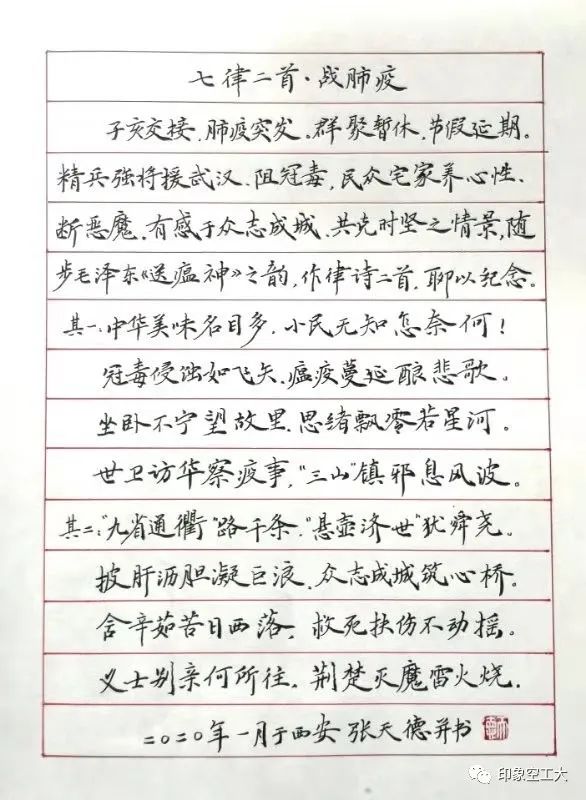 七律二首·战肺疫
子亥交接，肺疫突发。群聚暂休，节假延期。
精兵强将援武汉，阻冠毒，民众宅家养心性，
断恶魔，有感于众志成城，共克时坚之情景，随
步毛泽东《送瘟神》之韵，作律诗二首，聊以纪念。
其一：中华美味名目多，小民无知怎奈何！
冠毒侵蚀如飞矢，瘟疫蔓延酿悲歌。
坐卧不宁望故里，思绪飘零若星河。
世卫访华察疫事，“三山”镇邪息风波。
其二：“九省通衢”路千条，“悬壶济世”犹舜尧。
披肝沥胆凝巨浪，众志成城筑心桥。
含辛茹苦日西落，救死扶伤不动摇。
义士别亲何所往，荆楚灭魔雷火烧。
二〇二〇年一月于西安 张天德并书
印象空工大